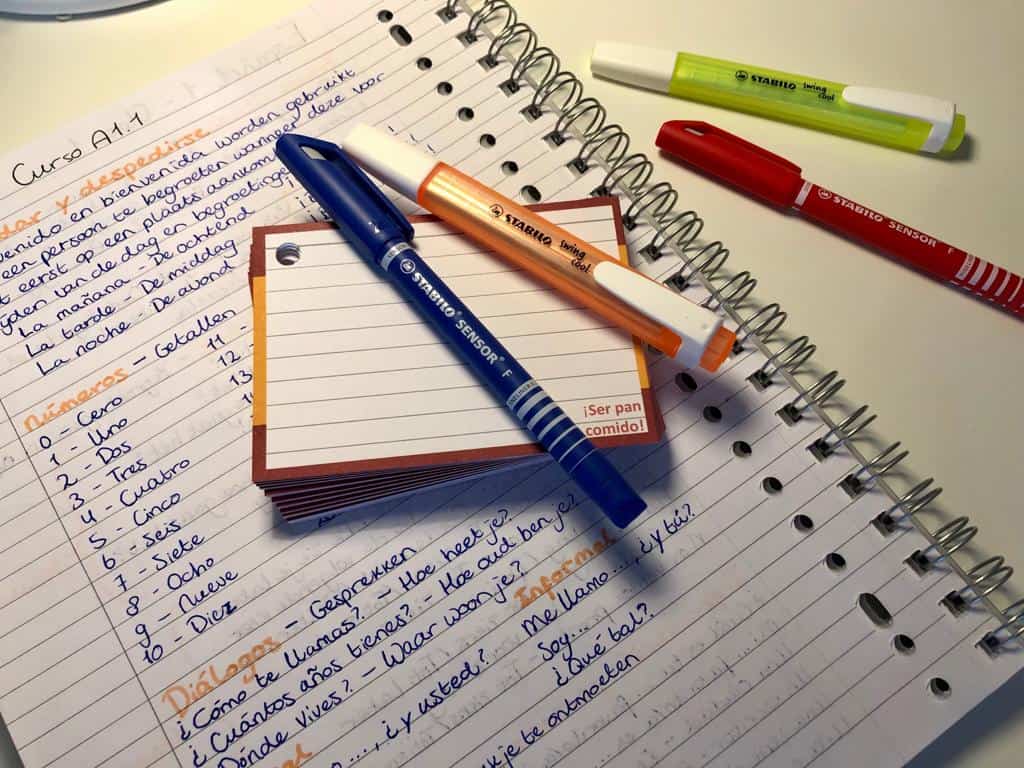 Curso A1.1
dar y despedirse
venido en bienvenida worden gebruikt
een persoon te begroeten wanneer deze voor
t eerst op een plaats aankom
yden van de dag en begroetinge
La mañana - De ochtend
La tarde - De middag
La noche - De avond
Números - Getallen
0 - Cero
1 - Uno
2 - Dos
3 - Tres
4 - Cuatro
5 - Cinco
6 - Seis
7 - Siete
8 - Ocho
9 - Nueve
10 - Diez
11 -
12 -
13
Diálogos - Gesprekken
¿Cómo te llamas? - Hoe heet je?
¿Cuántos años tienes? - Hoe oud ben je?
Dónde vives? - Waar woon je?
Informal
..., ¿y usted?
Me llamo..., ¿y tú?
Soy...
¿Qué tal?
k je te ontmoeten
¡Ser pan
comido!
STABILO SENSOR F
STABILO swing cool
STABILO swing cool
STABILO SENSOR F